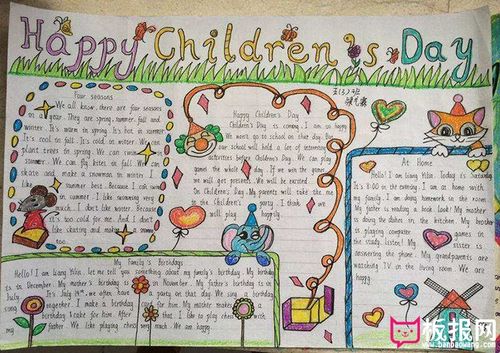 Happy Children's Day
Four seasons
We all know, there are four seasons
on a year. They are spring, summer, fall and
winter. It's warm in spring. It's hot in summer
It's cool in fall. It's cold in winter. We can
plant trees in spring. We can swimming in summer
We can fly kites in fall. We can
skate and make a snowman in winter. I
like summer best. Because I can swim
in summer. I like swimming very
much. I don't like winter. Because
it's too cold for me. And I don't
like skating and making a snowman
too.
Happy Children's Day
Children's Day is coming. I am so happy
We won't go to school on that day. But
our school will hold a lot of interesting
activities before Children's Day. We can play
games the whole day. If we win the games
we will get presents. We will be excited.
On Children's Day. My parents will take me to
the Children's party. I think I
will play happily.
At Home
Hello! I am Liang Yilin. Today is Saturday
It's 8:00 in the evening. I am at home with
my family. I am doing homework in the room
My father is reading a book. Look! My mother
is doing the dishes in the kitchen. My brother
is playing computer games in
the study. Listen! My sister is
answering the phone. My grandparents are
watching TV in the living room. We are
happy.
My Family's Birthdays
Hello! I am Liang Yilin. let me tell you something about my family's birthday. My birthday
is in December. My mother's birthday is in November. My father's birthday is in
July. It's July 19th. We often have a party on that day. We sing a birthday
song together. I make a birthday card for him. My mother makes
birthday cake for him. After that I like to play chess very with
my father. We like playing chess very much. We are happy.
板报网
www.banbaowang.com